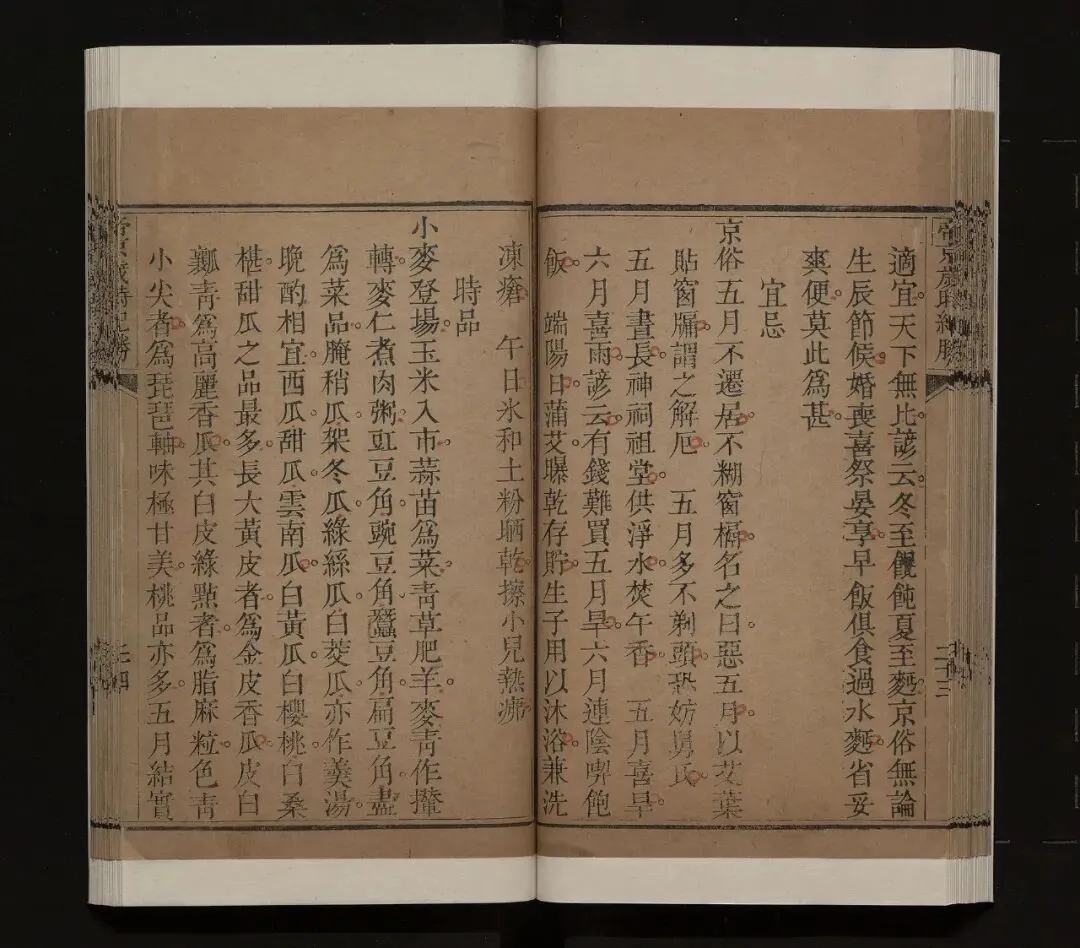 帝京歲時紀勝
二十三
適宜天下無比諺云冬至餛飩夏至麪京俗無論
生辰節候婚喪喜祭宴享早飯俱食過水麪省妥
爽便莫此爲甚
宜忌
京俗五月不遷居不糊窗槅名之曰惡五月以艾葉
貼窗牖謂之解厄　五月多不剃頭恐妨舅氏
五月晝長神祠祖堂供淨水焚午香　五月喜旱
六月喜雨諺云有錢難買五月旱六月連陰喫飽
飯　端陽日蒲艾曝乾存貯生子用以沐浴兼洗
凍瘡　午日氷和土粉晒乾擦小兒熱疿
時品
小麥登場玉米入市蒜苗爲菜青草肥羊麥青作撵
轉麥仁煮肉粥豇豆角豌豆角蠶豆角扁豆角盡
爲菜品腌稍瓜架冬瓜綠絲瓜白茭瓜亦作羮湯
晚酌相宜西瓜甜瓜雲南瓜白黃瓜白櫻桃白桑
椹甜瓜之品最多長大黃皮者爲金皮香瓜皮白
瓤青爲高麗香瓜其白皮綠點者爲脂麻粒色青
小尖者爲琵琶軸味極甘美桃品亦多五月結實
帝京歲時紀勝
二十四